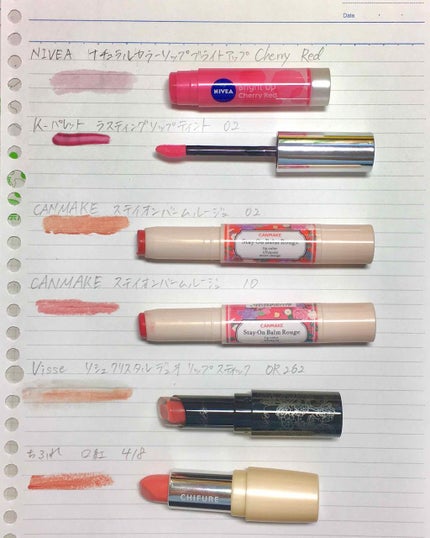 Date
NIVEA ナチュラルカラーリップブライトアップ Cherry Red
NIVEA
Bright Up
Cherry Red
K-パレット ラスティングリップティント 02
CANMAKE ステイオンバームルージュ 02
CANMAKE
Stay-On Balm Rouge
CANMAKE ステイオンバームルージュ 10
CANMAKE
Stay-On Balm Rouge
Visse リシェ クリスタルデュオ リップスティック OR262
ちふれ 口紅 418
CHIFURE